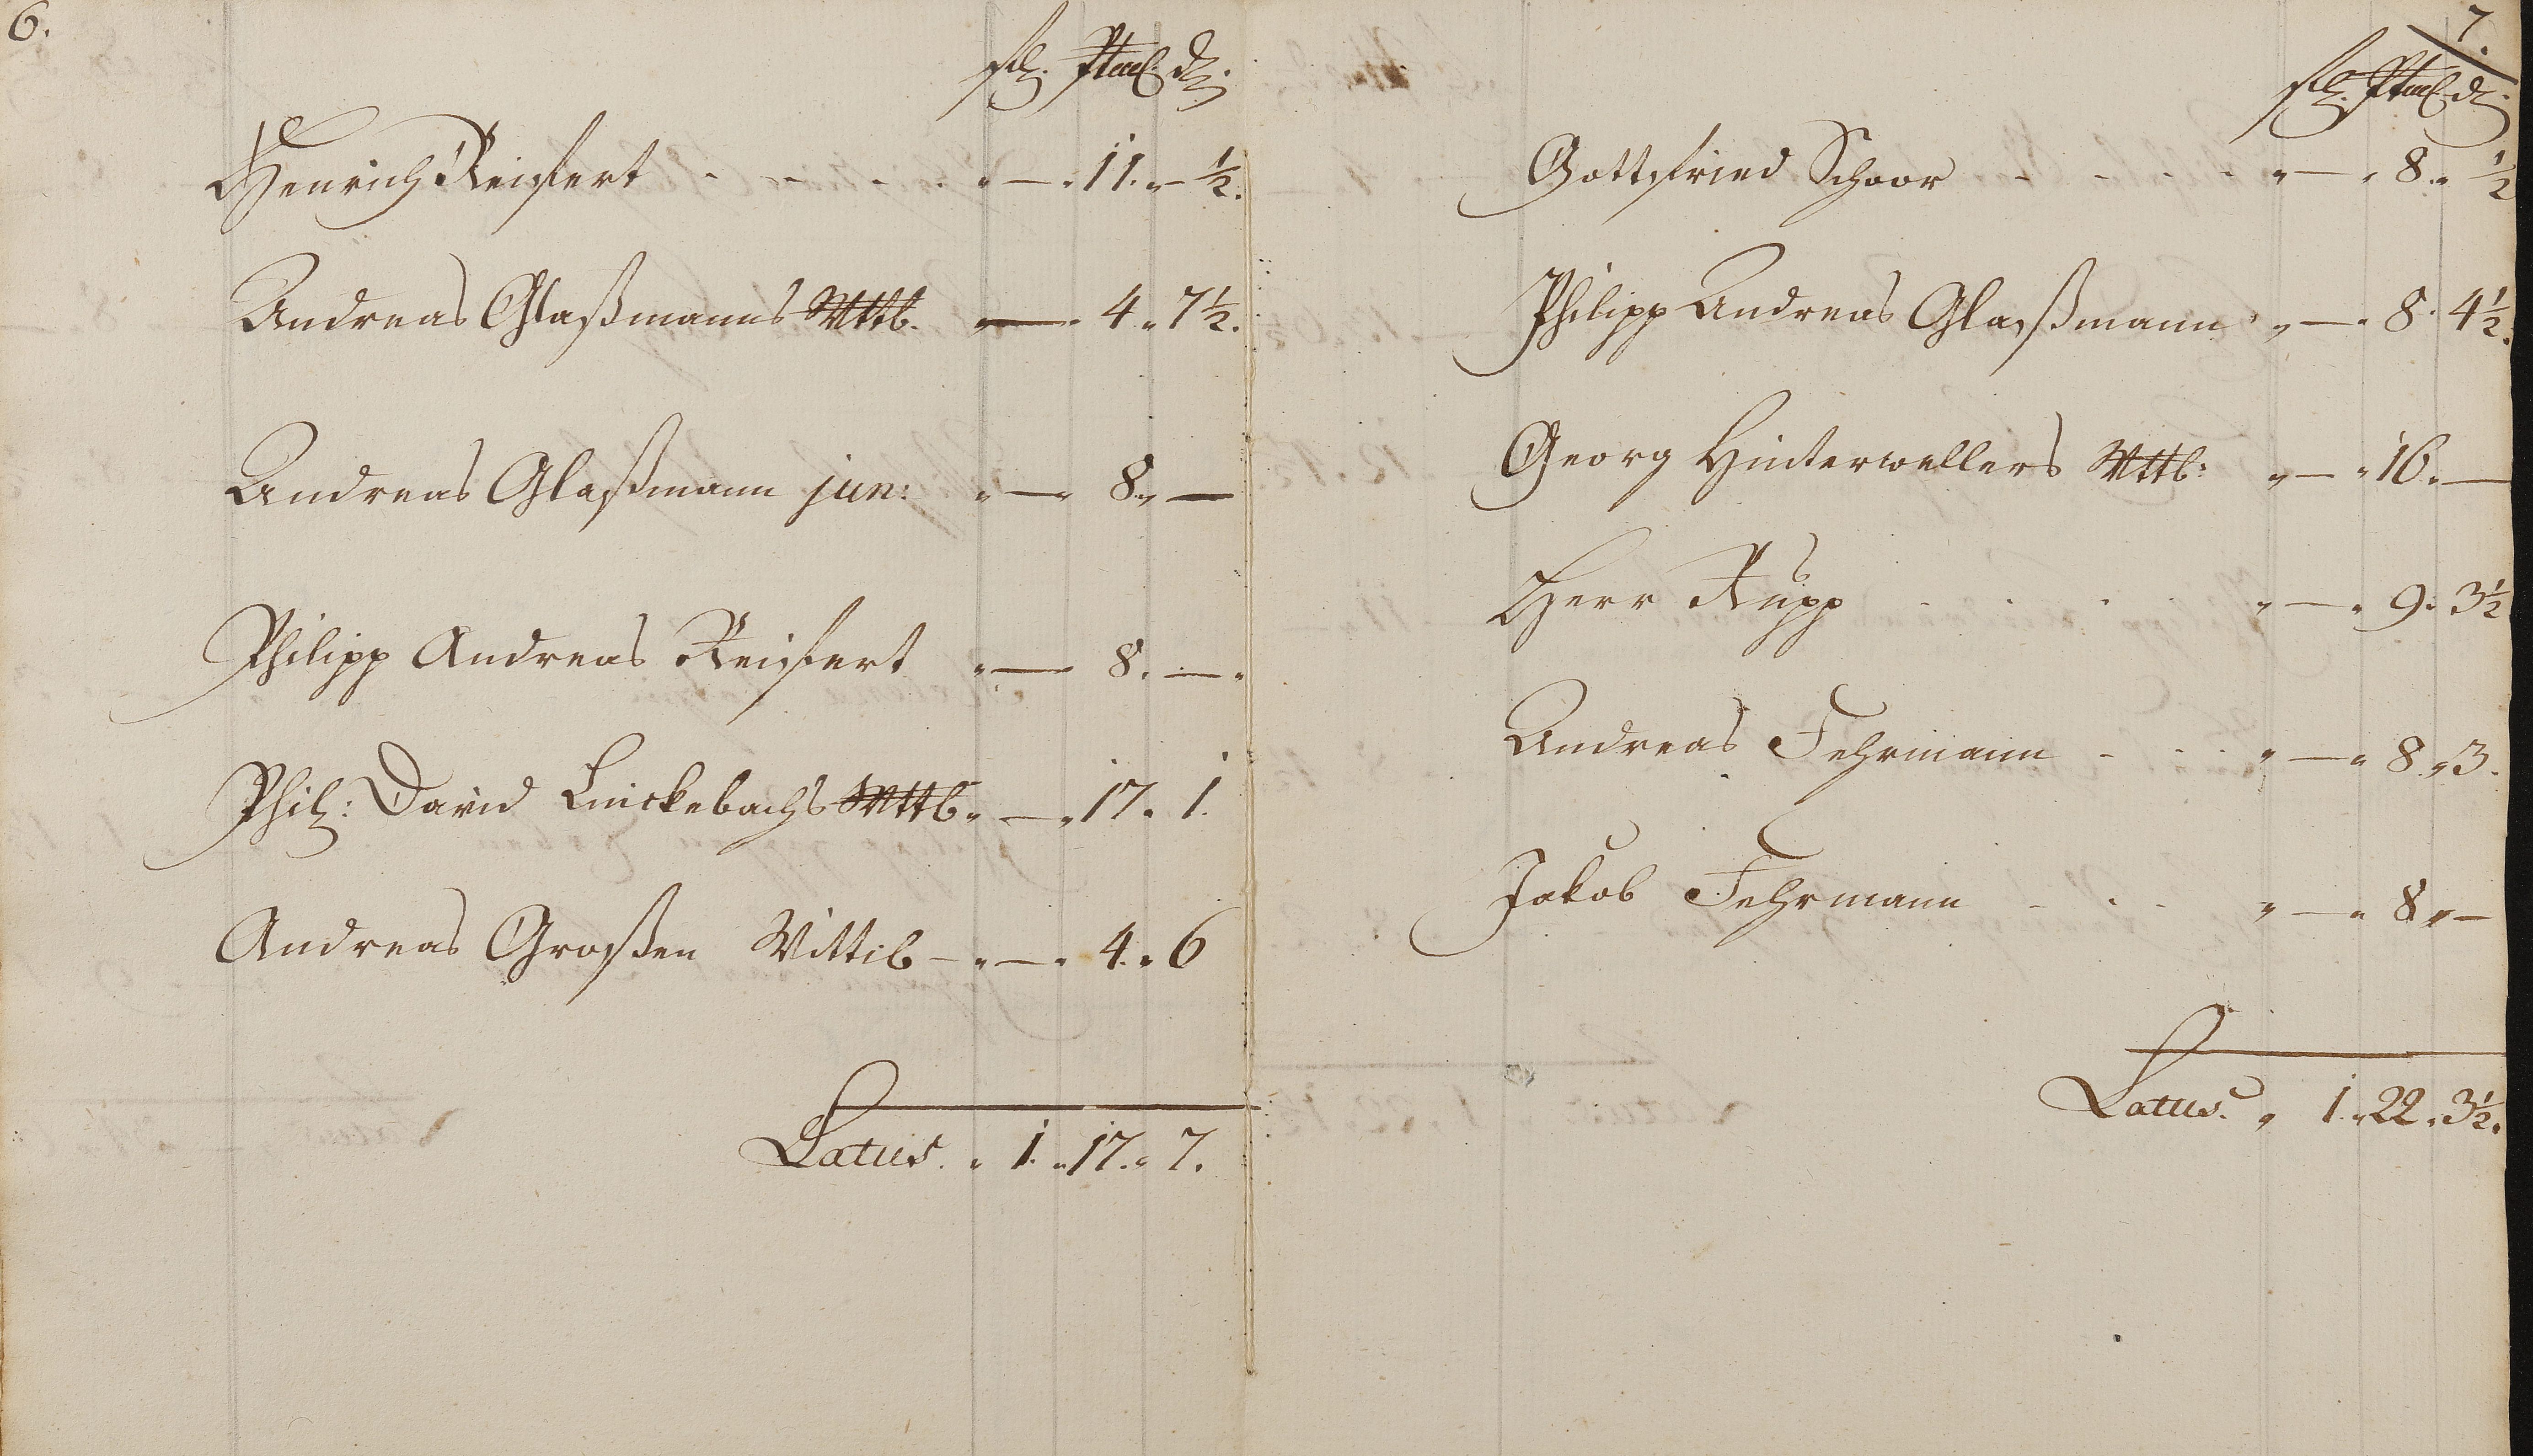 6.
fl. Stbl. d.
Henrich Reifert - - - - " — " 11. " - ½.
Andreas Glaßmanns Wttb. " — " 4 " 7½.
Andreas Glaßmann jun: " — " 8. " —
Philipp Andreas Reifert " — " 8. —.
Phil: David Linckebachs Wttb. " — " 17 " 1.
Andreas Großen Wittib - " — " 4. " 6
Latus. " 1. " 17. " 7.
7.
fl. d.
Gottfried Schoor - - - - " — " 8. " ½
Philipp Andreas Glaßmann " — " 8. 4½.
Georg Hinterwellers Wttb: " — " 16. —
Herr Rupp - - - - " — " 9. 3½
Andreas Fehrmann - - - " — " 8. " 3.
Jakob Fehrmann - - - " — " 8 " —
Latus. " 1. " 22. " 3½.